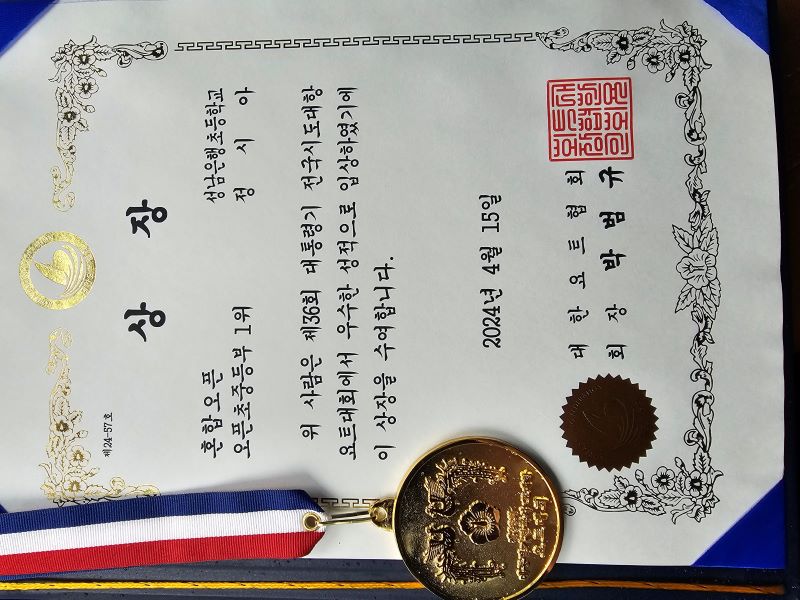 제24-57호
상 장
혼합오픈
오픈초중등부 1위
성남은행초등학교
정 시 아
위 사람은 제36회 대통령기 전국시도대항
요트대회에서 우수한 성적으로 입상하였기에
이 상장을 수여합니다.
2024년 4월 15일
대 한 요 트 협 회
회 장 박 범 규